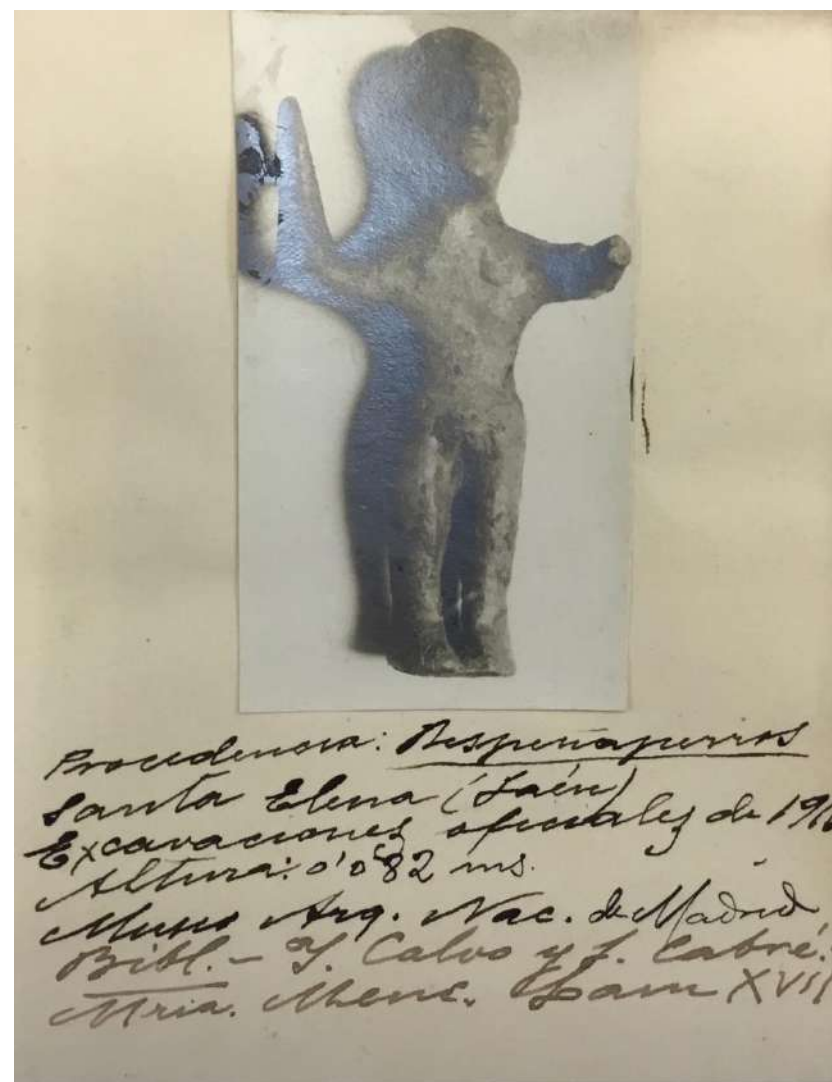 Procedencia: Despeñaperros
Santa Elena (Jaén)
Excavaciones oficiales de 191
Altura: 0'082 ms.
Museo Arq. Nac. de Madrid
Bibl.- I. Calvo y J. Cabré.
Mria. Lam XVII